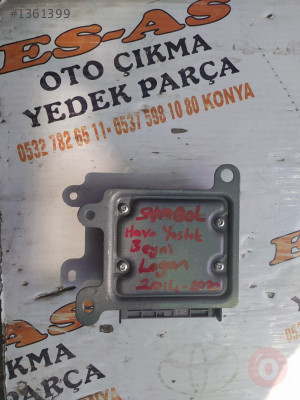 #1361399
ES-AS
OTO ÇIKMA
YEDEK PARÇA
0532 782 65 11- 0537 598 10 80 KONYA
SYMBOL
Hava Yastık
Beyni
Logan
2014-2020
ÇIKMA
PARÇA